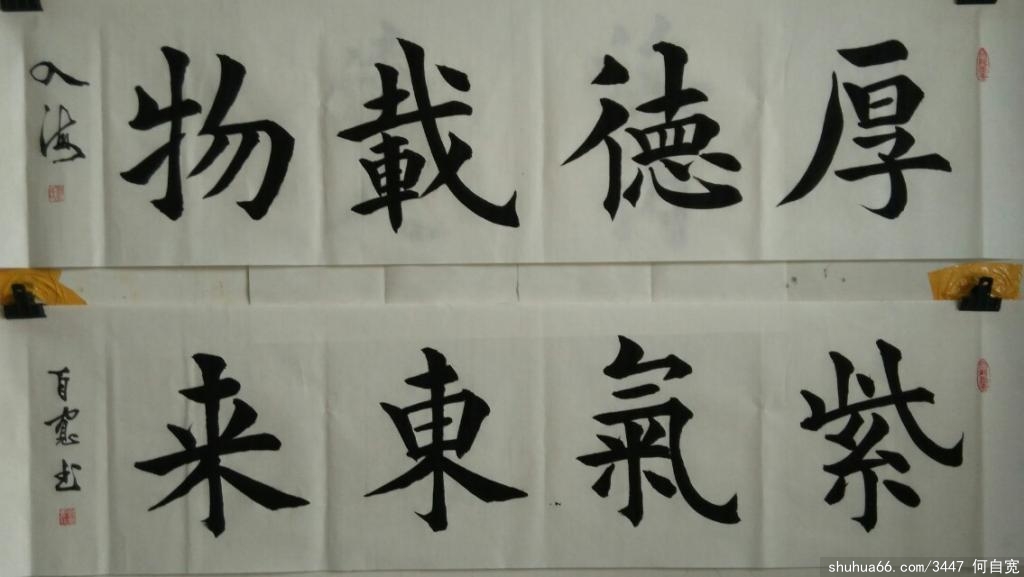 厚德載物
入海
紫氣東来
自寬书
shuhua66.com/3447 何自宽